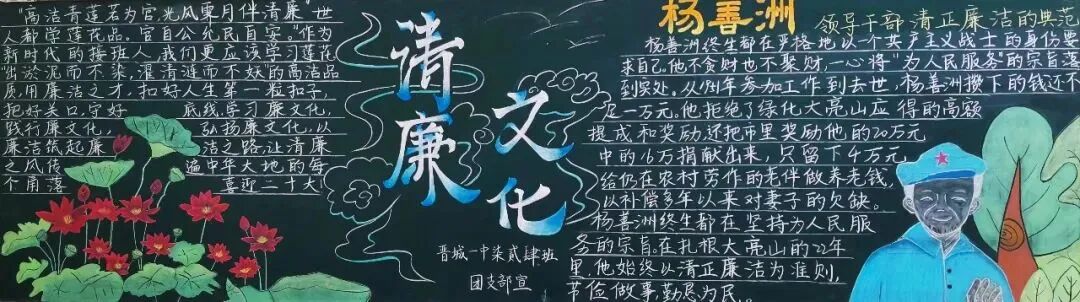 “高洁青莲若为官,光风霁月伴清廉”世
人都学莲花品。官自公允民自安。”作为
新时代的接班人,我们更应该学习莲花
“出淤泥而不染,濯清涟而不妖”的高洁品
质,用廉洁之才,扣好人生第一粒扣子,
把好关口,守好 底线,学习廉文化,
践行廉文化, 弘扬廉文化,以
廉洁筑起廉 洁之路,让清廉
之风传 遍中华大地的每
个角落 喜迎二十大!
清廉
文化
晋城一中柒贰肆班
团支部宣
杨善洲 领导干部清正廉洁的典范
杨善洲终生都在严格地以一个共产主义战士的身份要
求自己。他不贪财也不聚财,一心将“为人民服务”的宗旨落
到实处。从1951年参加工作到去世,杨善洲攒下的钱还不
足一万元。他拒绝了绿化大亮山应得的高额
提成和奖励,还把市里奖励他的20万元
中的16万捐献出来,只留下4万元
给仍在农村劳作的老伴做养老钱,
以补偿多年以来对妻子的欠缺。
杨善洲终生都在坚持为人民服
务的宗旨。在扎根大亮山的22年
里,他始终以清正廉洁为准则,
节俭做事,勤恳为民。